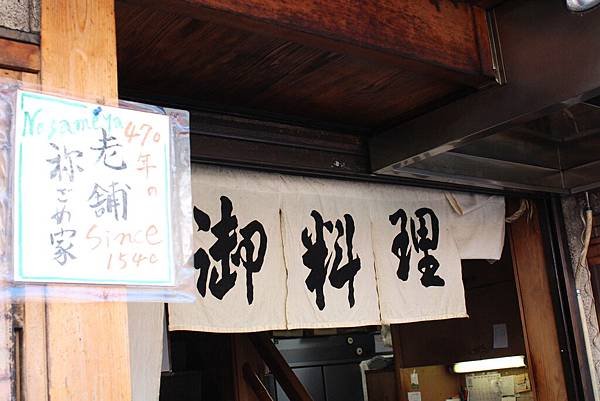 Nezameya
470年の
老舗
Since
1540
祢ざめ家
御料理